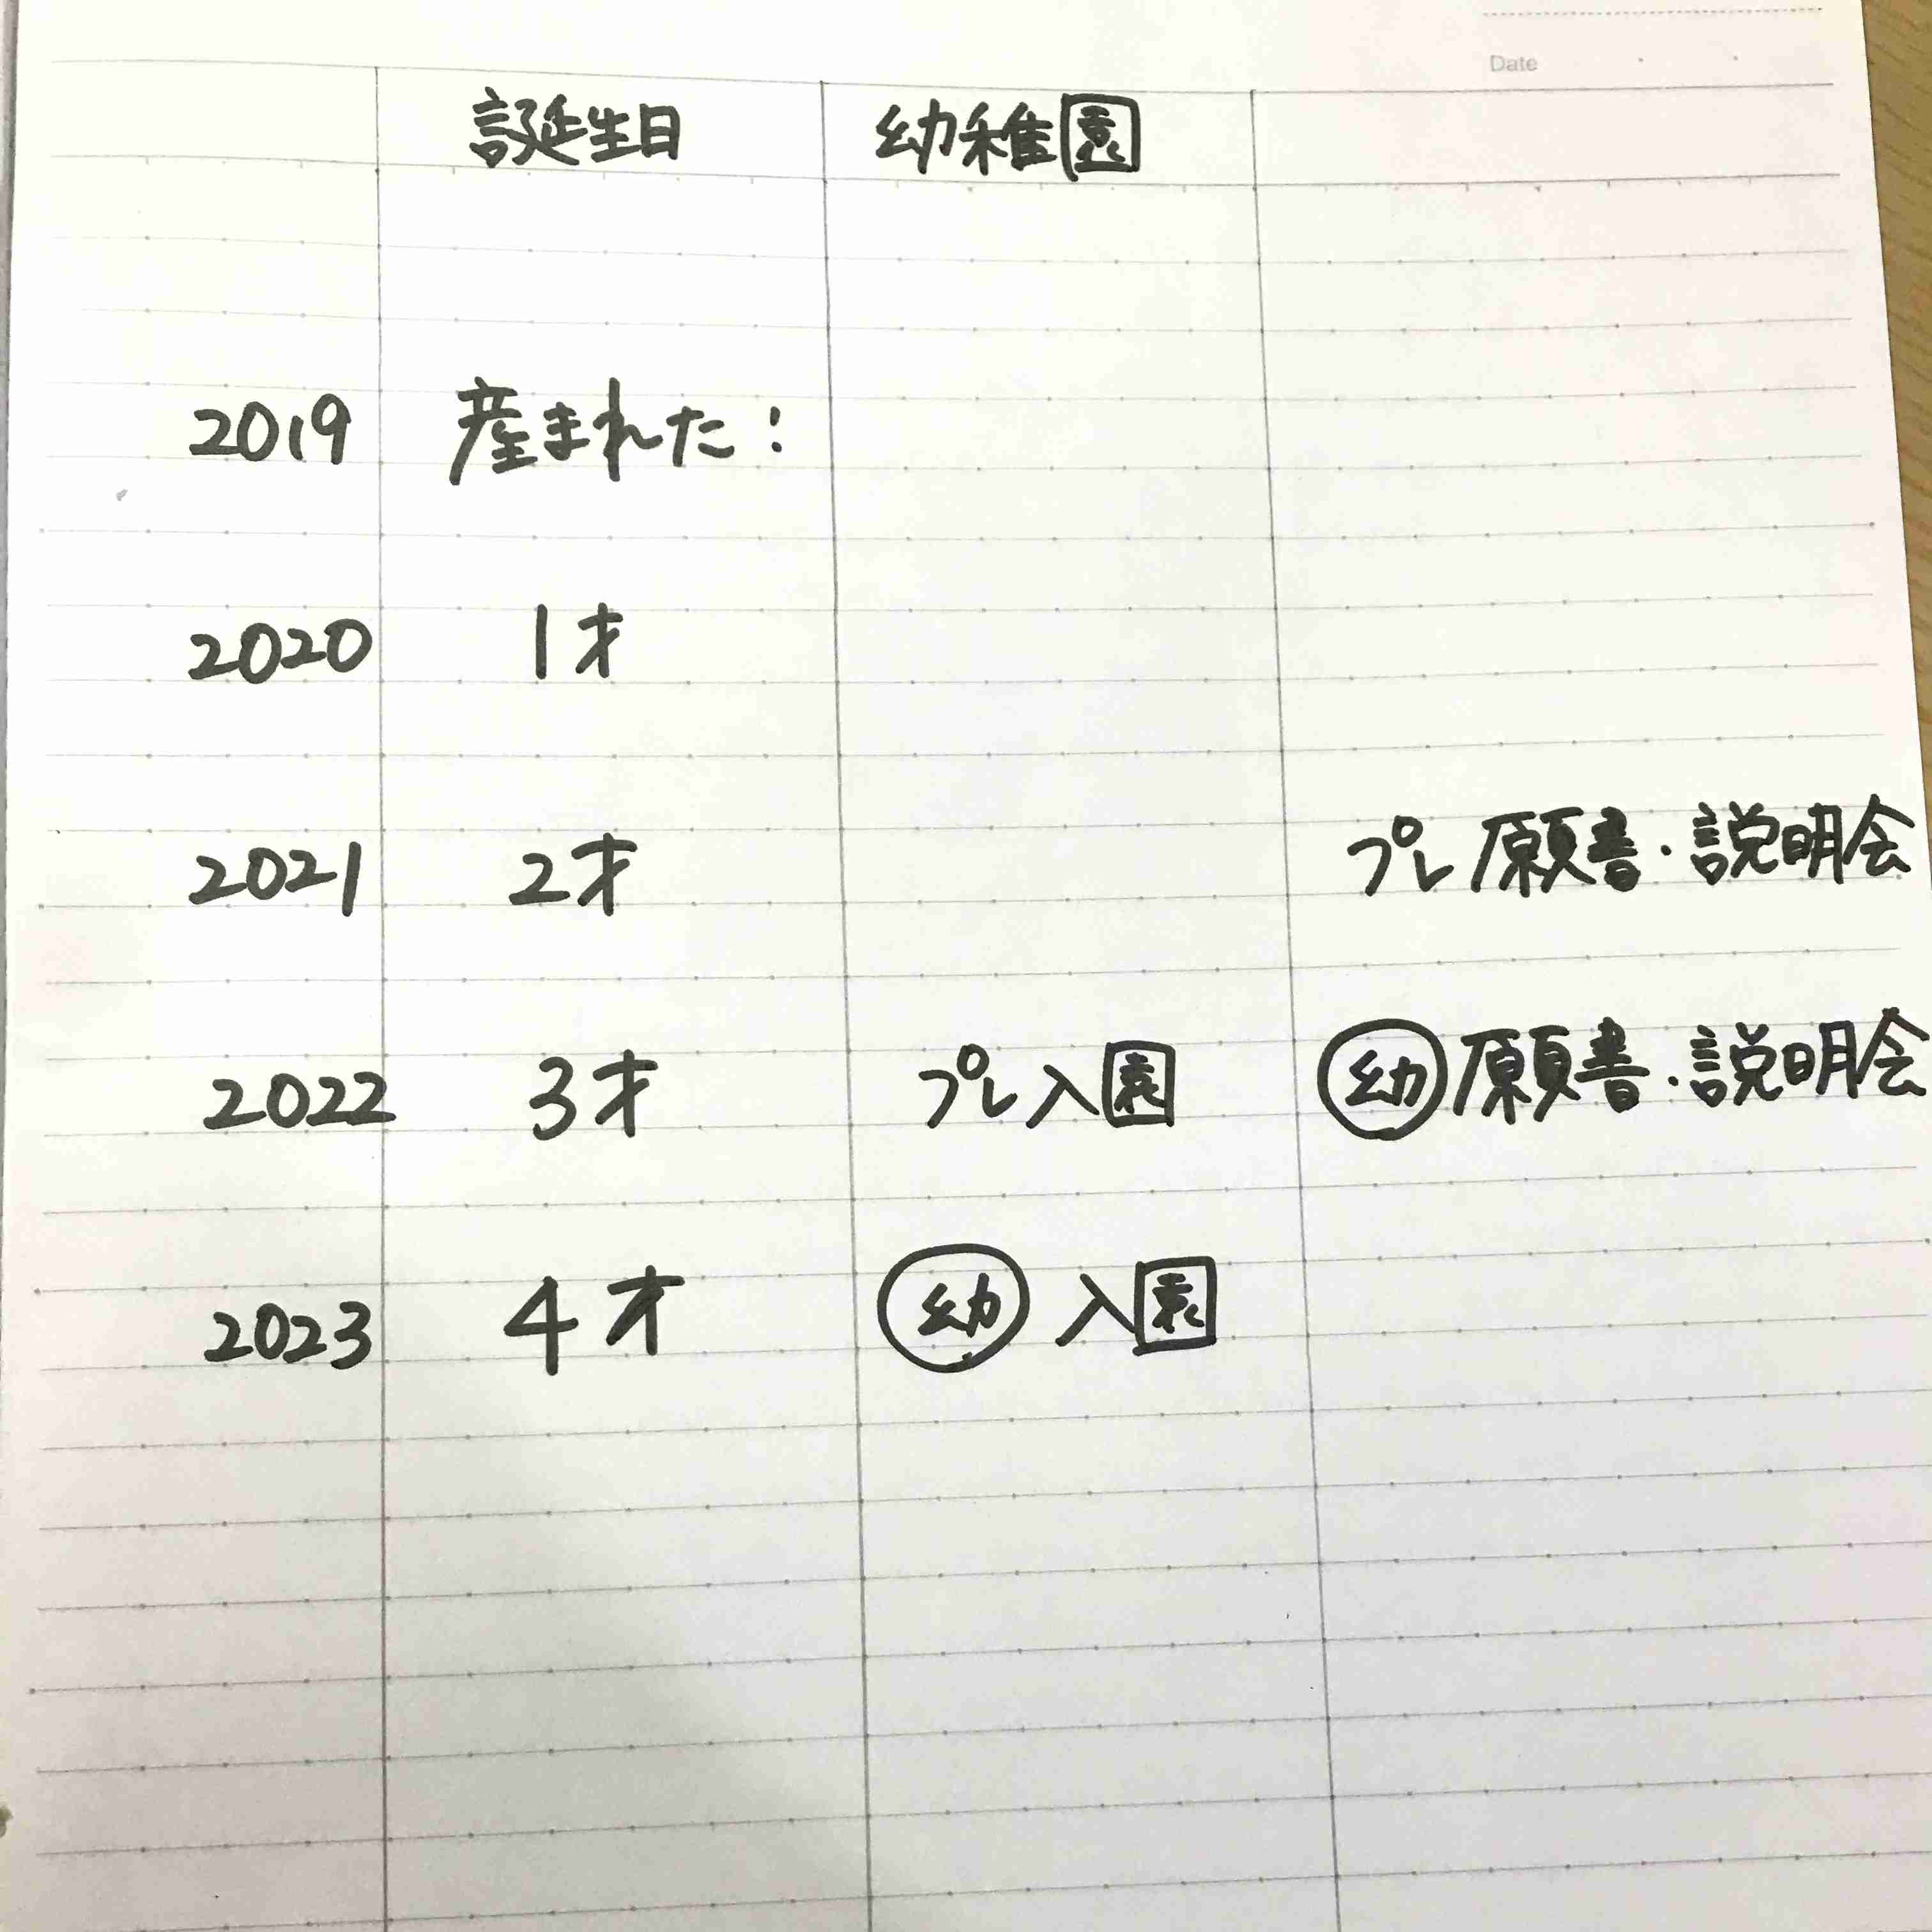 Date
誕生日 幼稚園
2019 産まれた!
2020 1才
2021 2才 プレ願書・説明会
2022 3才 プレ入園 幼願書・説明会
2023 4才 幼入園